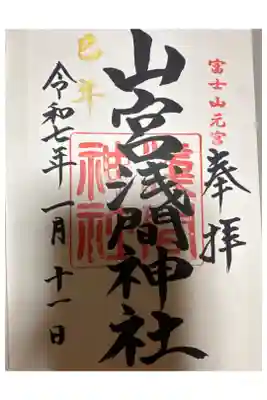 富士山元宮
奉拝
山宮浅間神社
巳年
令和七年一月十一日